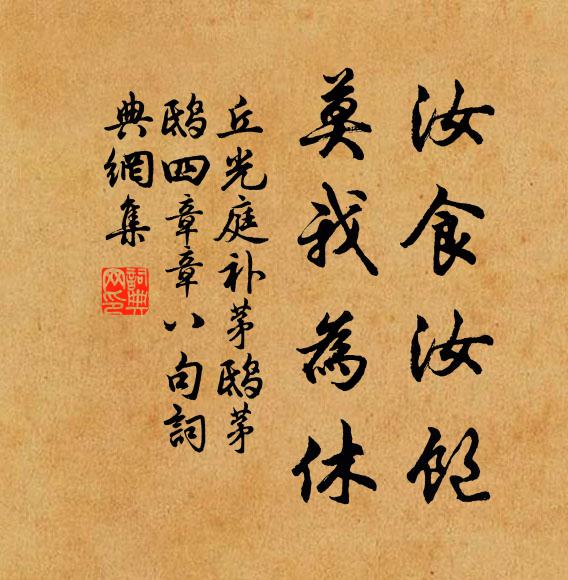 汝食汝飽
莫我為休
丘光庭补茅鴟茅
鴟四章章八句詞
典網集
詞典
网印